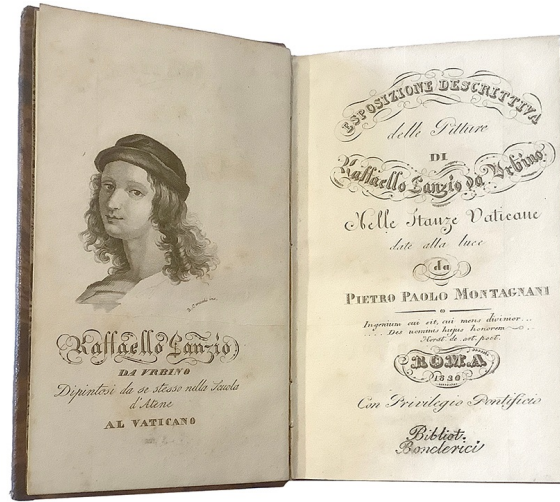 Raffaello Sanzio
DA VRBINO
Dipintosi da se stesso nella Scuola
d'Atene
AL VATICANO
ESPOSIZIONE DESCRITTIVA
delle Pitture
DI
Raffaello Sanzio da Vrbino
Nelle Stanze Vaticane
date alla luce
da
PIETRO PAOLO MONTAGNANI
Ingenium cui sit, cui mens divinior...
... Des nominis hujus honorem
Horat. de art. poet.
ROMA
Con Privilegio Pontificio
Bibliot.
Bonclerici